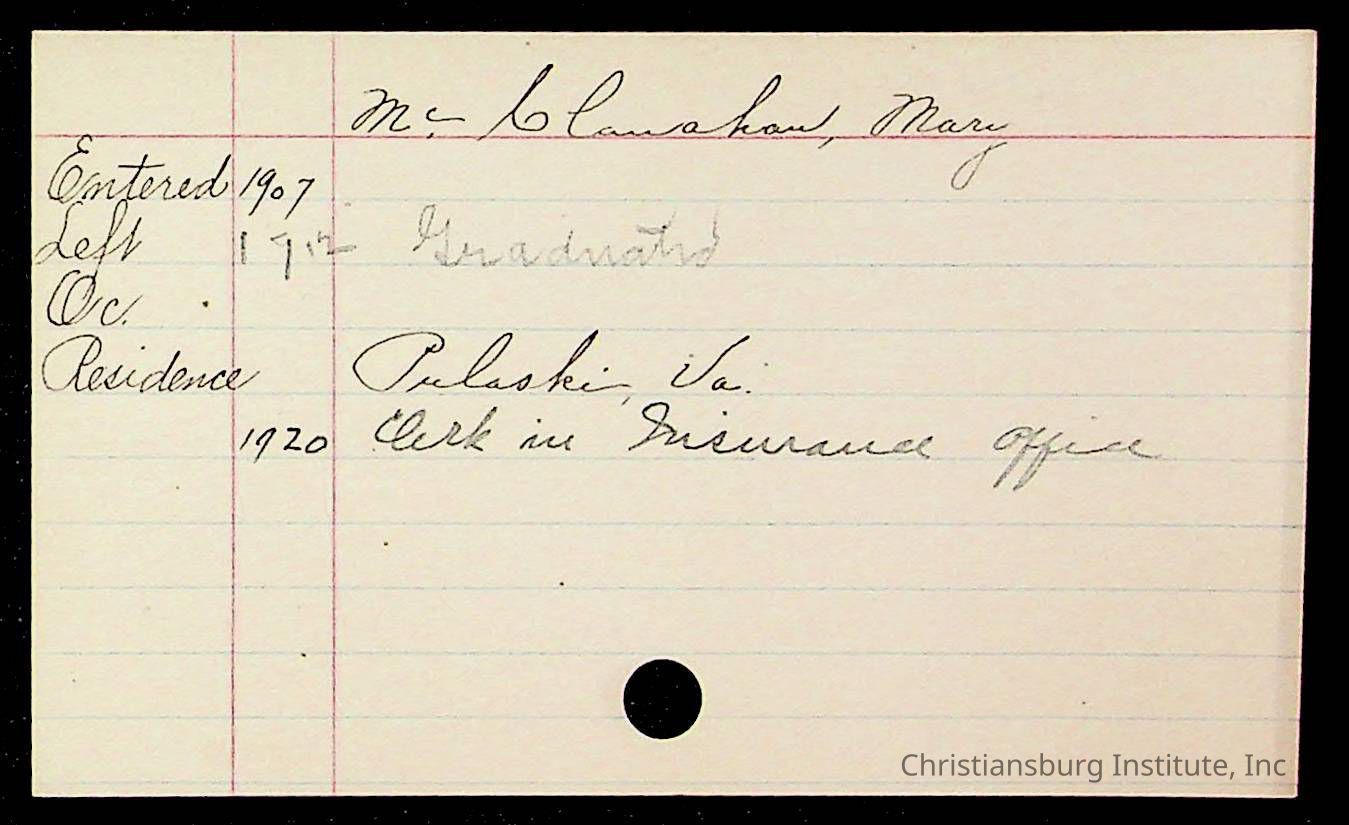 Mc Clanahan, Mary
Entered 1907
Left 1912 Graduated
Oc.
Residence Pulaski, Va.
1920 Clerk in Insurance office
Christiansburg Institute, Inc